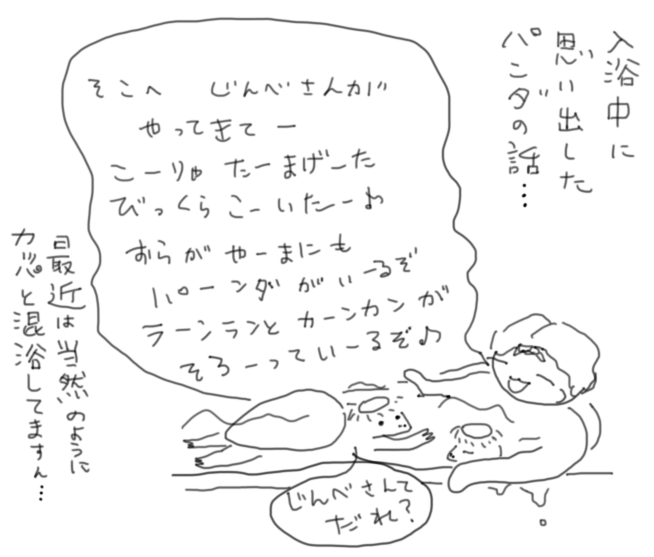 入浴中に
思い出した
パンダの話…
そこへ じんべさんが
やってきてー
こーりゃ たーまげーた
びっくら こーいたー♪
おらが やーまにも
パーンダが いーるぞ
ラーンランと カーンカンが
そろーって いーるぞ♪
じんべさんて
だれ?
最近は当然のように
カッパと混浴してますん…